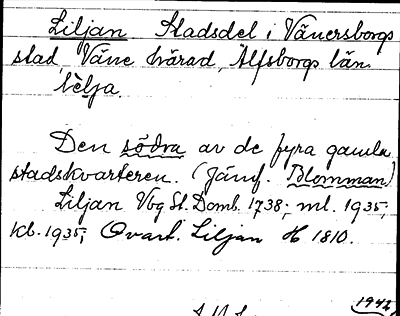 Liljan Stadsdel i Vänersborgs
stad, Väne härad, Älfsborgs län.
lìlja.
Den södra av de fyra gamla
stadskvarteren. (Jämf. Blomman)
Liljan Vbg St. Domb. 1738; ml. 1935;
kl. 1935; Qvart. Liljan H 1810.
1942